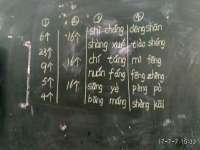 ① ② ③ ④
6↑ -16↑ shì chǎng dēng shān
23↑ shàng xué tiào shéng
9↑ -16↑ chí táng mì fēng
5↑ nuǎn fáng fēng zhēng
5↑ 16↑ yè
4↑ bāng máng shèng kāi
17-7-7 15:33